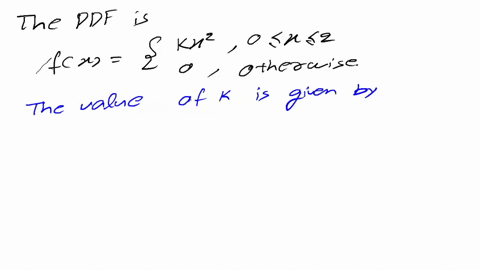 The PDF is
f(x) = { Kx², 0 ≤ x ≤ 2
0, otherwise
The value of K is given by